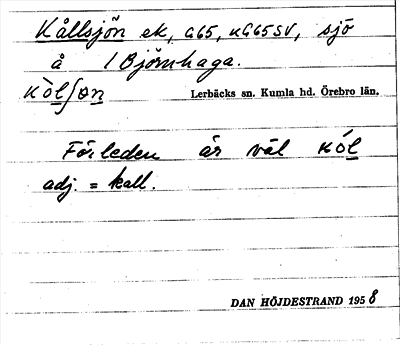 Kållsjön ek, G65, KG65SV, sjö
å 1 Björnhaga.
Kòlʃøn Lerbäcks sn. Kumla hd. Örebro län.
Förleden är väl Kól
adj. = kall.
DAN HÖJDESTRAND 1958